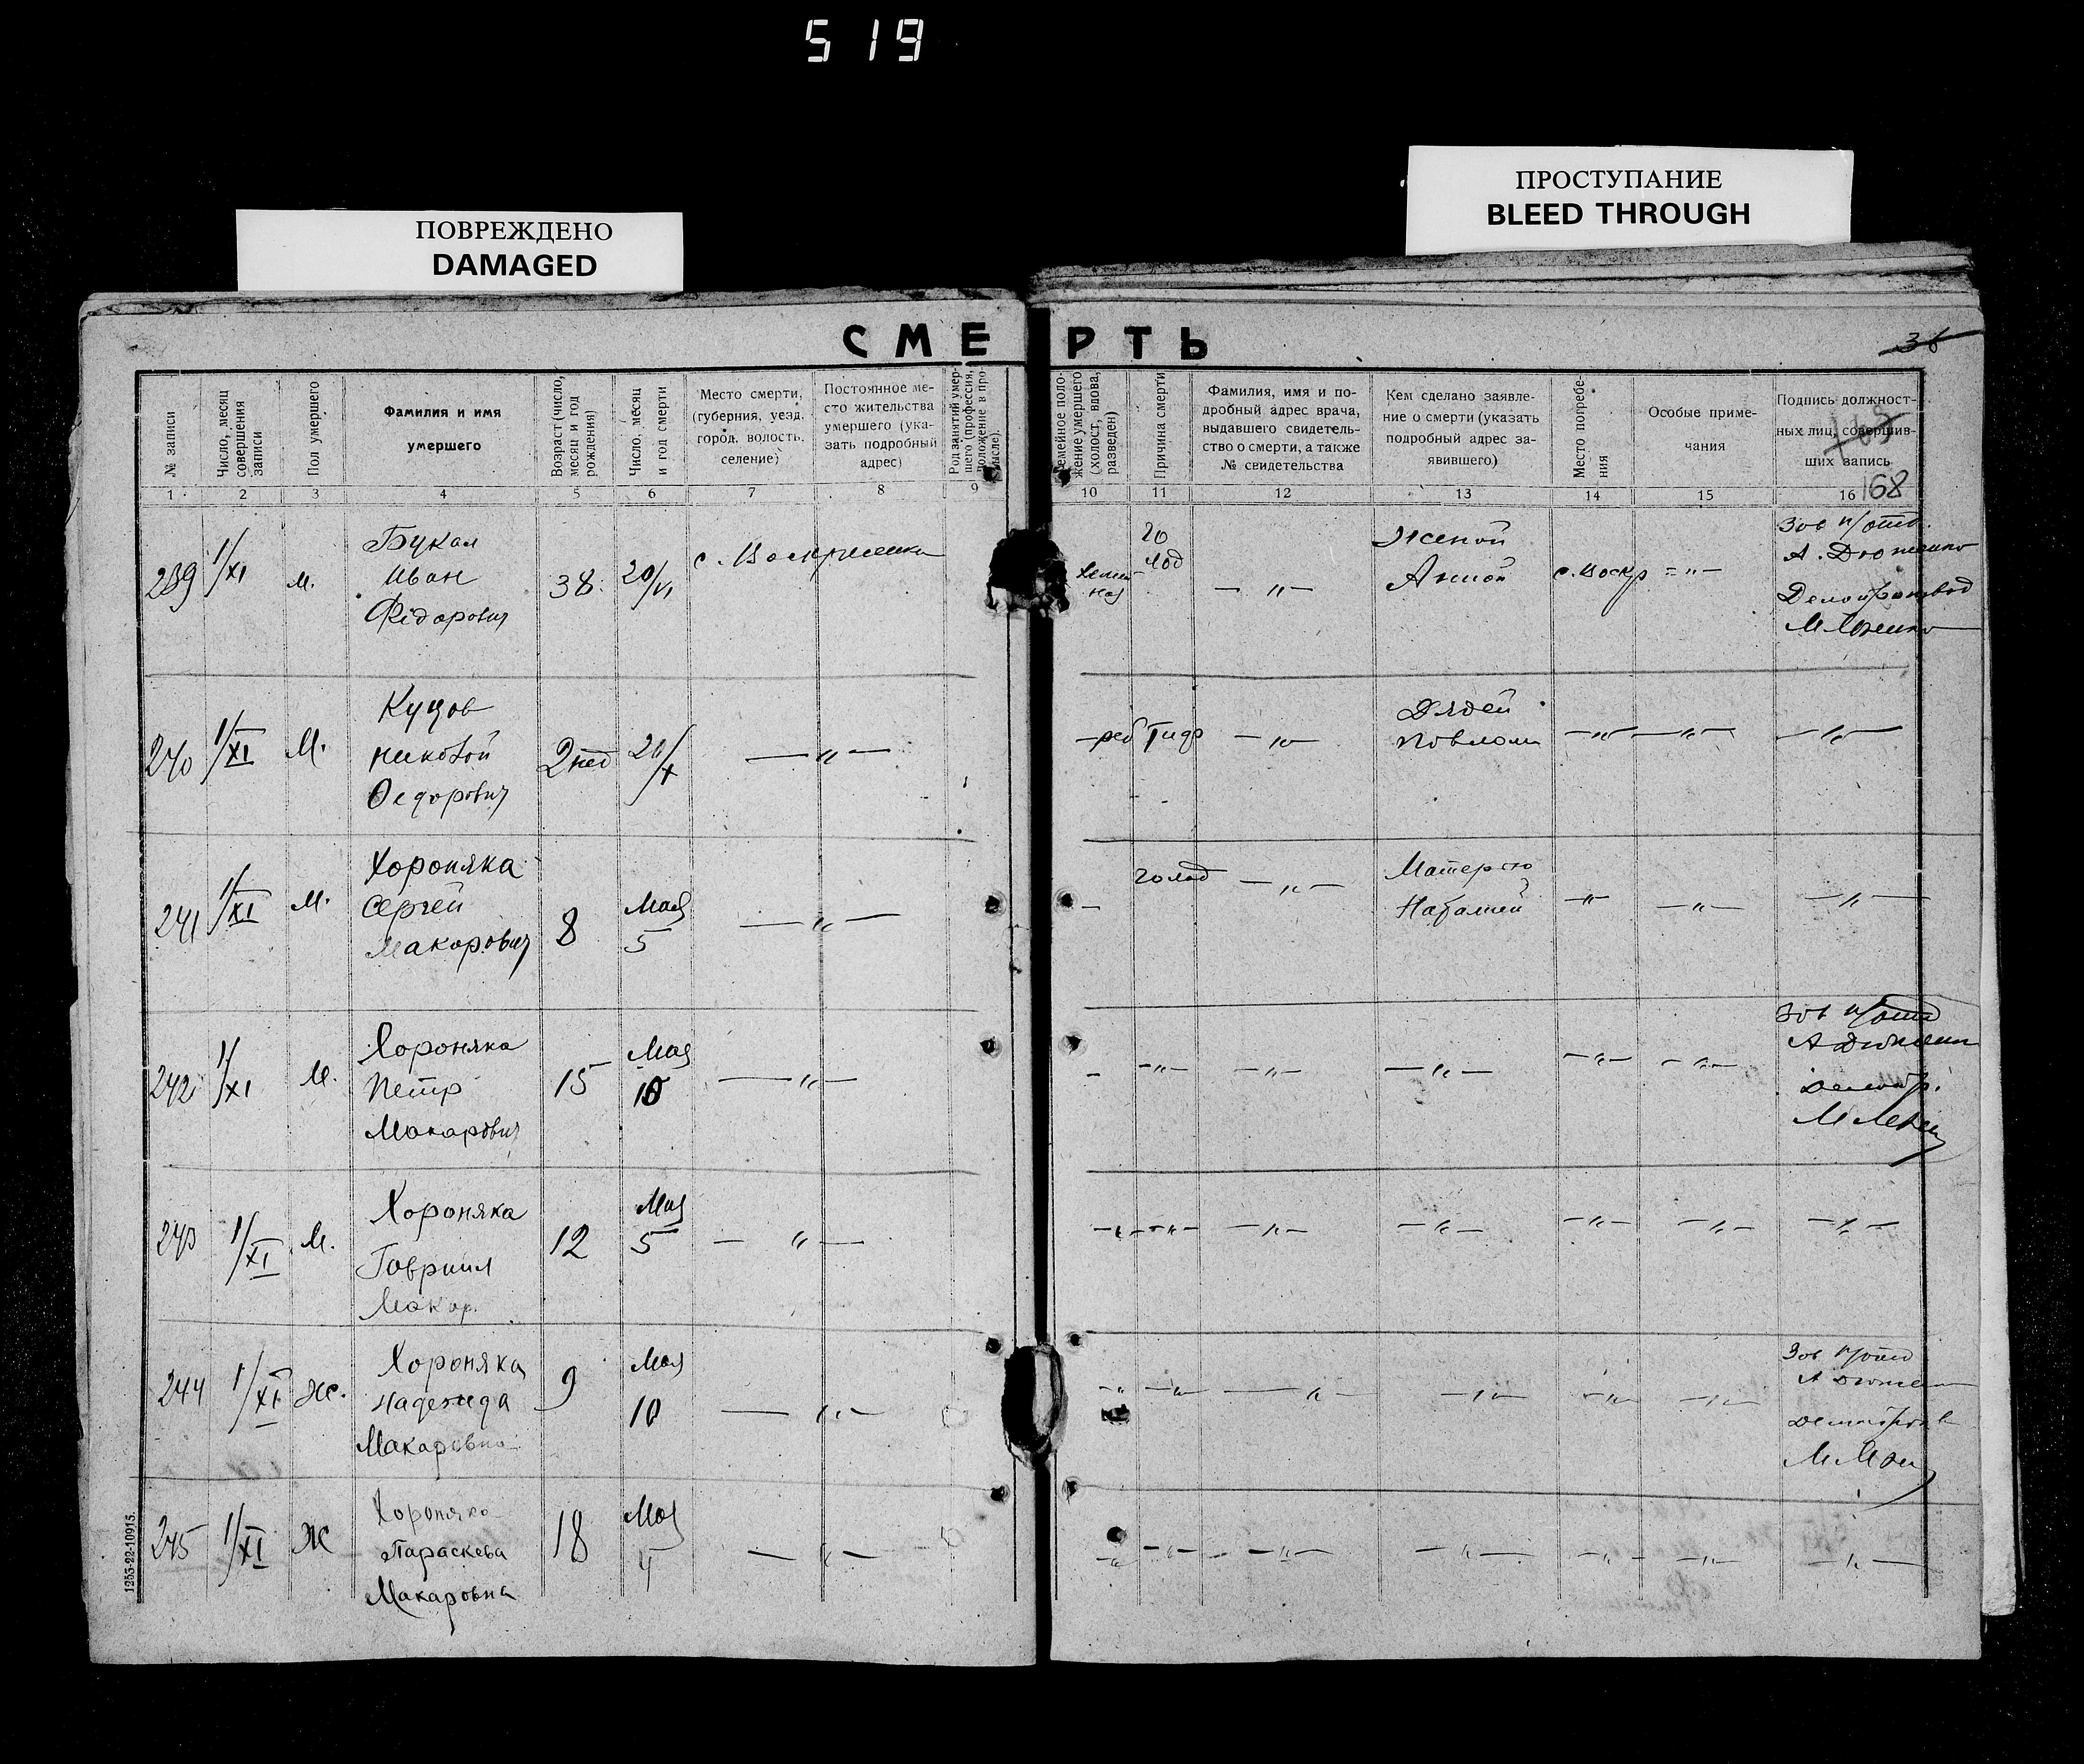 519
ПОВРЕЖДЕНО
DAMAGED
ПРОСТУПАНИЕ
BLEED THROUGH
СМЕРТЬ
36
№ записи
Число, месяц совершения записи
Пол умершего
Фамилия и имя умершего
Возраст (число, месяц и год рождения)
Число, месяц и год смерти
Место смерти, (губерния, уезд, город, волость, селение)
Постоянное место жительства умершего (указать подробный адрес)
Род занятий умершего (профессия, положение в промысле).
Семейное положение умершего (холост, вдова, разведен)
Причина смерти
Фамилия, имя и подробный адрес врача, выдавшего свидетельство о смерти, а также № свидетельства
Кем сделано заявление о смерти (указать подробный адрес заявившего)
Место погребения
Особые примечания
Подпись должностных лиц, совершивших запись
168
1 2 3 4 5 6 7 8 9 10 11 12 13 14 15 16
239 1/XI м. Букал Иван Фёдорович 38 20/VI с. Воскресенка
голод — „ — Женой Анной с. Воскр = „ —
240 1/XI М. Федорович 2 нед 20/X — „ —
реб Тиф — „ — Дядей Павлом — „ — — „ — — „ —
241 1/XI М. Хороняка Сергей Макарович 8 Мая 5 — „ —
— голод — „ — Матерью Наталией — „ — — „ — — „ —
242 1/XI М. Хороняка Петр Макарович 15 Мая 10 — „ —
— — „ — — „ — — „ — — „ — — „ —
243 1/XI М. Хороняка Гавриил Макар. 12 Мая 5 — „ —
— „ — „ — — „ — — „ — — „ — — „ — — „ —
244 1/XI Ж. Хороняка Надежда Макаровна 9 Мая 10 — „ —
— „ — „ — — „ — — „ — — „ — — „ —
245 1/XI Ж Хороняка Параскева Макаровна 18 Мая 4 — „ —
— „ — „ — — „ — — „ — — „ — — „ — — „ —
1253-22-10915.